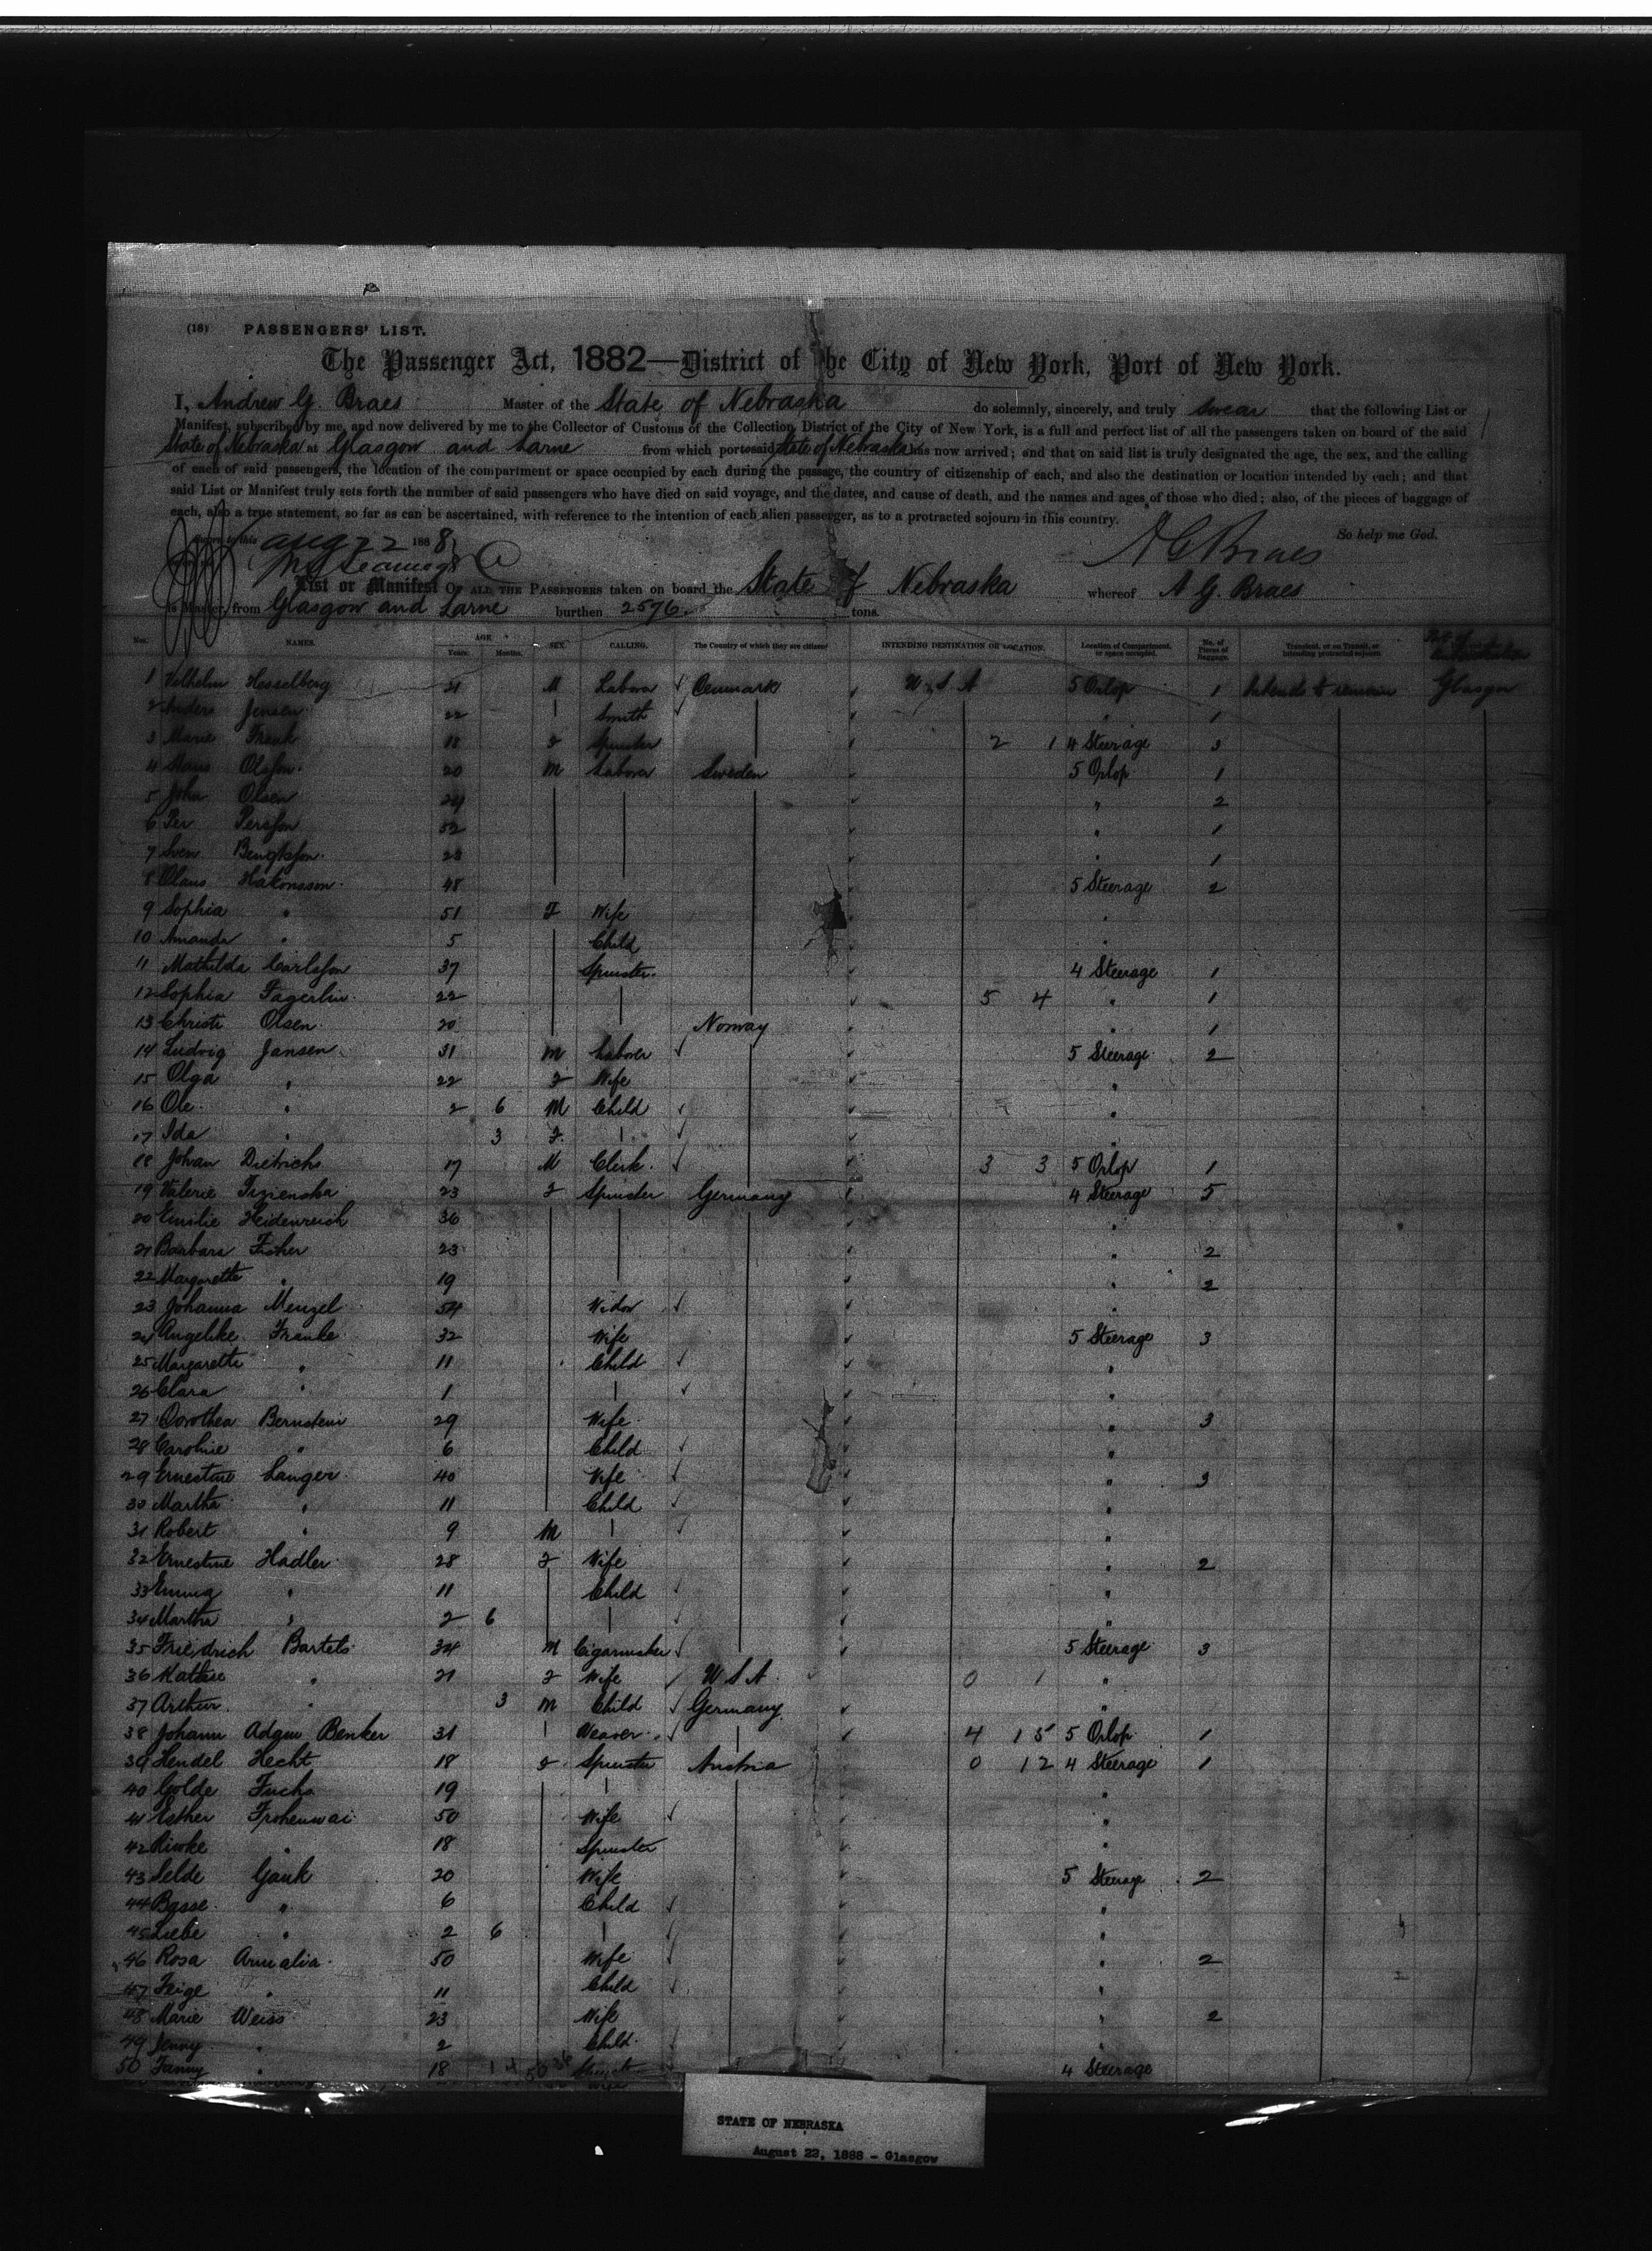 (16) PASSENGERS' LIST.
The Passenger Act, 1882—District of the City of New York, Port of New York.
I, Andrew G. Braes Master of the State of Nebraska do solemnly, sincerely, and truly swear that the following List or
Manifest, subscribed by me, and now delivered by me to the Collector of Customs of the Collection District of the City of New York, is a full and perfect list of all the passengers taken on board of the said
State of Nebraska at Glasgow and Larne from which port said State of Nebraska has now arrived; and that on said list is truly designated the age, the sex, and the calling
of each of said passengers, the location of the compartment or space occupied by each during the passage, the country of citizenship of each, and also the destination or location intended by each; and that
said List or Manifest truly sets forth the number of said passengers who have died on said voyage, and the dates, and cause of death, and the names and ages of those who died; also, of the pieces of baggage of
each, also a true statement, so far as can be ascertained, with reference to the intention of each alien passenger, as to a protracted sojourn in this country.
So help me God.
Sworn to this Aug 22 1888 A G Braes
List or Manifest OF ALL THE PASSENGERS taken on board the State of Nebraska whereof A G. Braes
is Master, from Glasgow and Larne burthen 2576 tons.
Nos. NAMES. AGE Years. Months. SEX. CALLING. The Country of which they are citizens INTENDING DESTINATION OR LOCATION. Location of Compartment, or space occupied. No. of Pieces of Baggage. Transient, or on Transit, or intending protracted sojourn.
1 Vilhelm Hesselberg 21 M Labourer Denmark U.S.A 5 Orlop 1 Intends to remain Glasgow
2 Anders Jensen 22 Smith " 1
3 Marie Frank 18 F Spinster 2 1 4 Steerage 3
4 Olafson 20 M Labourer Sweden 5 Orlop 1
5 John Olsen 24 " 2
6 Per Persson 52 " 1
7 Sven Bengtsson 28 " 1
8 Olaus Hakonsson 48 5 Steerage 2
9 Sophia " 51 F Wife "
10 Amanda " 5 Child "
11 Mathilda Carlsson 37 Spinster 4 Steerage 1
12 Sophia Fagerlin 22 5 4 " 1
13 Christi Olsen 20 Norway " 1
14 Ludvig Jansen 31 M Labourer 5 Steerage 2
15 Olga " 22 F Wife "
16 Ole " 2 6 M Child "
17 Ida " 3 F "
18 Johan Dietrichs 17 M Clerk 3 3 5 Orlop 1
19 Valerie 23 F Spinster Germany 4 Steerage 5
20 Emilie Heidenreich 36 "
21 Barbara Fisher 23 " 2
22 Margarette " 19 " 2
23 Johanna Menzel 54 Widow "
24 Angelike Franke 32 Wife 5 Steerage 3
25 Margarette " 11 Child "
26 Clara " 1 "
27 Dorothea Bernstein 29 Wife " 3
28 Caroline " 6 Child "
29 Ernestine Langer 40 Wife " 3
30 Martha " 11 Child "
31 Robert " 9 M "
32 Ernestine Hadler 28 F Wife " 2
33 Emma " 11 Child "
34 Martha " 2 6 "
35 Friedrich Bartels 34 M Cigarmaker 5 Steerage 3
36 " 21 F Wife U S A 0 1 "
37 Arthur " 3 M Child Germany "
38 Johann Adam Benker 31 Weaver 4 15 5 Orlop 1
39 Hendel Hecht 18 F Spinster Austria 0 12 4 Steerage 1
40 Golde Fuchs 19 "
41 Esther 50 Wife "
42 Riwke " 18 Spinster "
43 Selde Gank 20 Wife 5 Steerage 2
44 Basse " 6 Child "
45 Liebe " 2 6 "
46 Rosa Amalia 50 Wife " 2
47 Feige " 11 Child "
48 Marie Weiss 23 Wife " 2
49 Jenny " 2 Child "
50 Fanny " 18 Spinster 4 Steerage
STATE OF NEBRASKA
August 22, 1888 - Glasgow